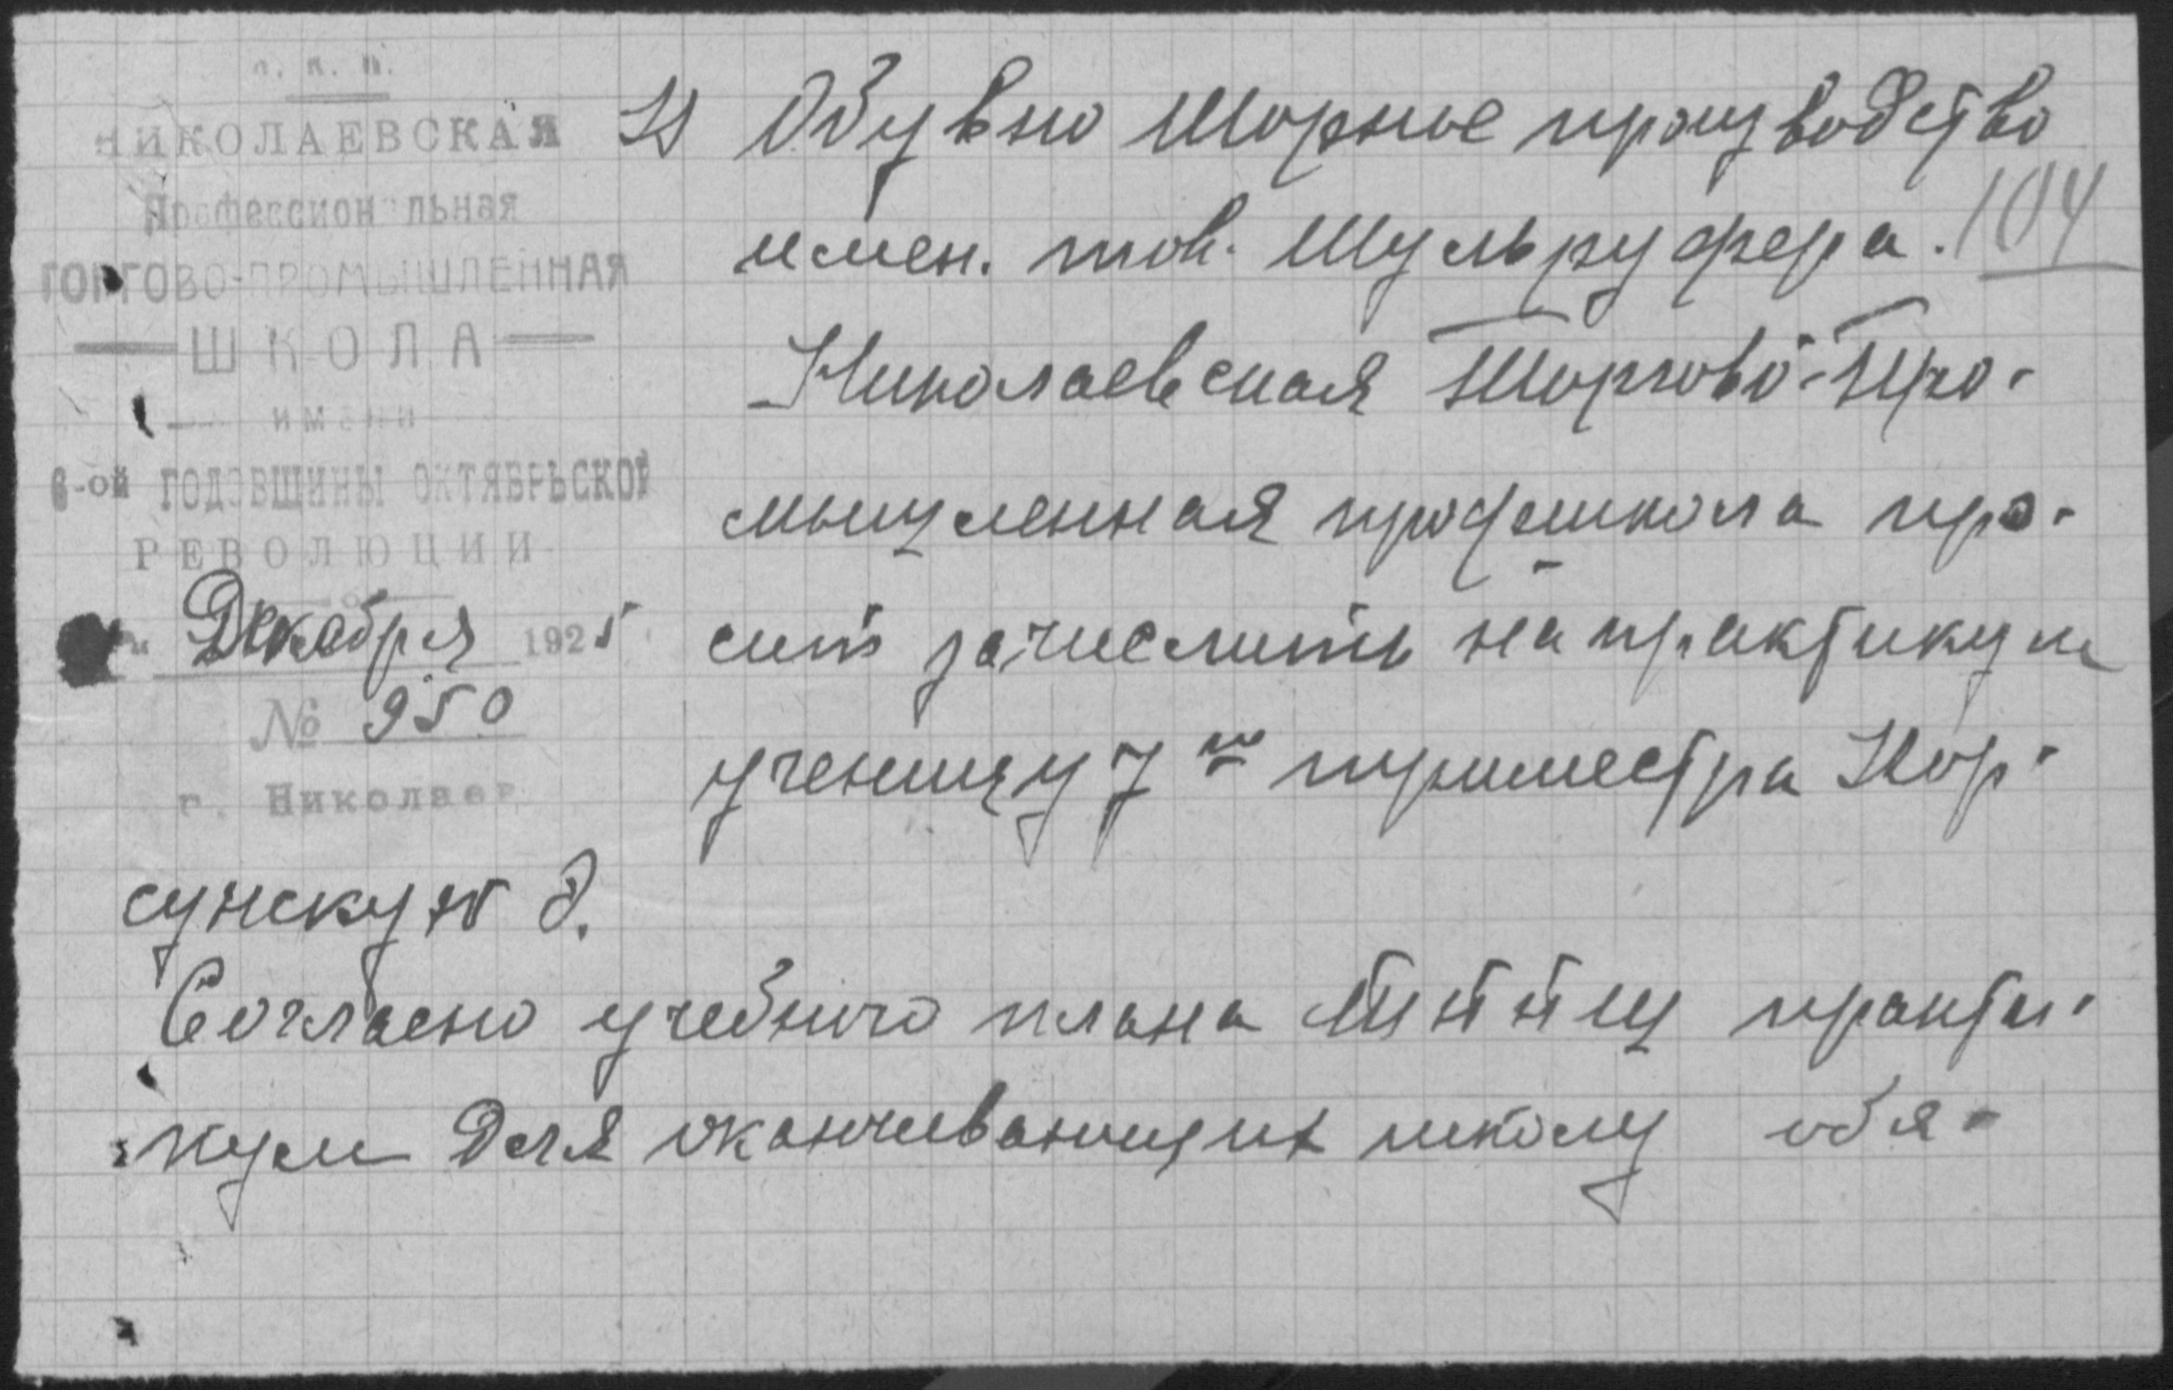 Н. К. П.
НИКОЛАЕВСКАЯ
Профессиональная
ТОРГОВО-ПРОМЫШЛЕННАЯ
— ШКОЛА —
— имени —
6-ой ГОДОВЩИНЫ ОКТЯБРЬСКОЙ
РЕВОЛЮЦИИ
Декабря 1925
№ 950
г. Николаев
В Обувно Шорное производство
имен. тов. Шульруфера. 104
Николаевская Торгово-Про-
мышленная профшкола про-
сит зачислить на практикум
ученицу 7го триместра Кор-
сунскую д.
Согласно учебного плана практи-
кум для оканчивающих школу обя-